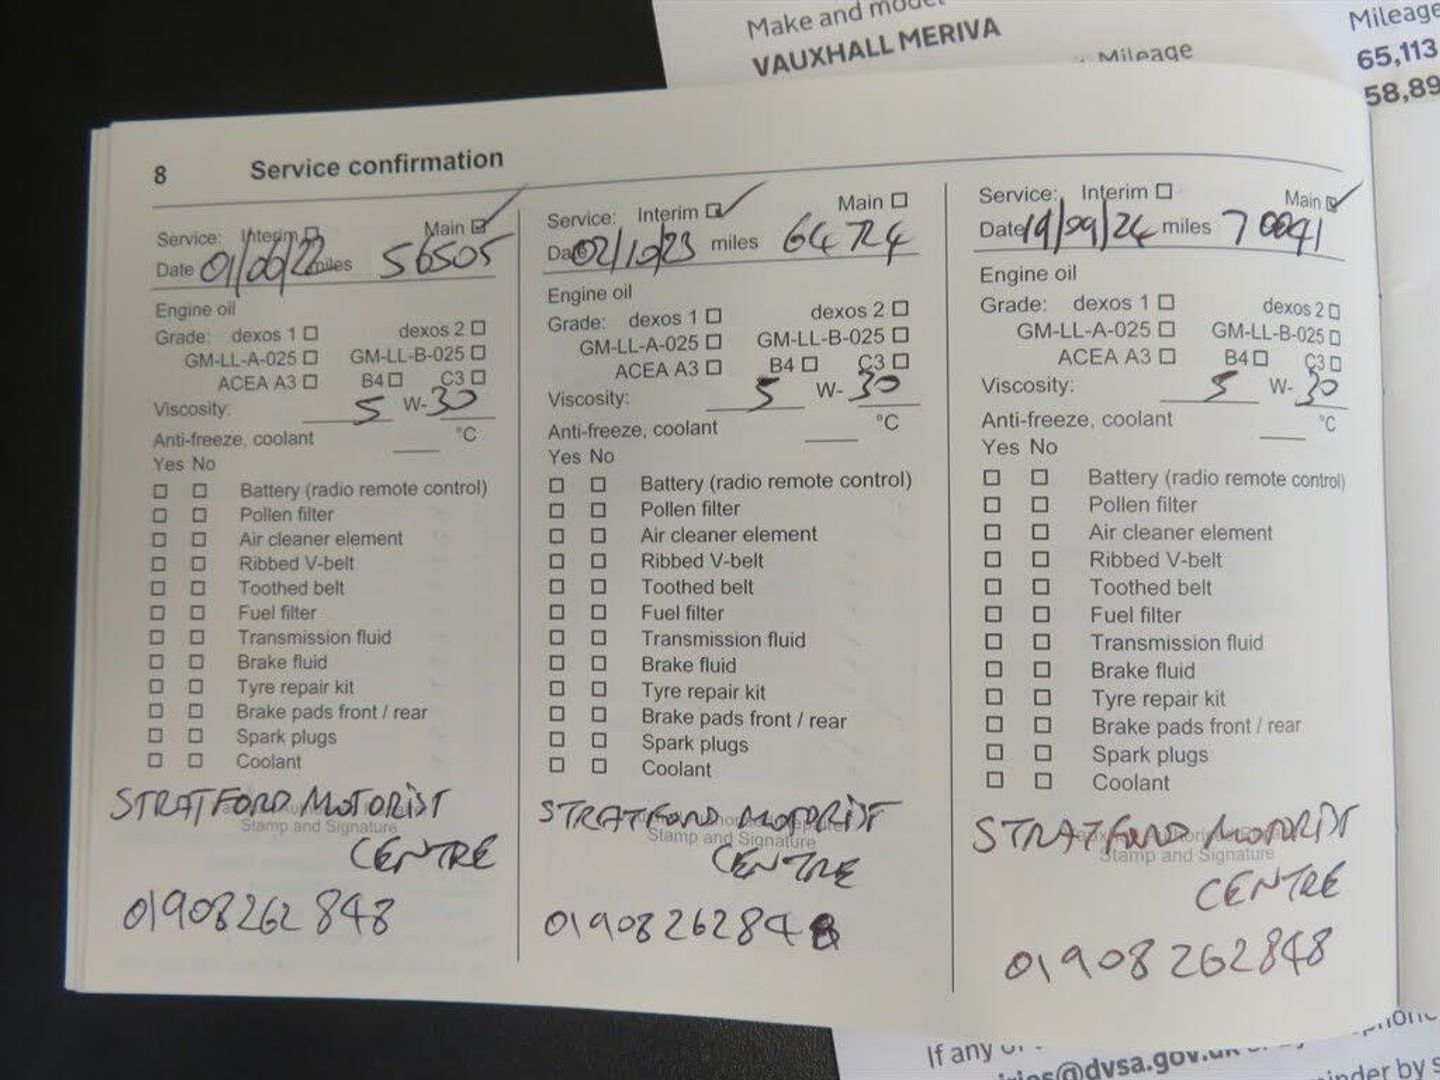 Make and model
VAUXHALL MERIVA
Mileage
Mileage
65,113
58,89
8 Service confirmation
Service: Interim Main
Date 01/06/22 miles 56505
Engine oil
Grade: dexos 1 dexos 2
GM-LL-A-025 GM-LL-B-025
ACEA A3 B4 C3
Viscosity: 5 W-30
Anti-freeze, coolant °C
Yes No
Battery (radio remote control)
Pollen filter
Air cleaner element
Ribbed V-belt
Toothed belt
Fuel filter
Transmission fluid
Brake fluid
Tyre repair kit
Brake pads front / rear
Spark plugs
Coolant
STRATFORD MOTORIST
Stamp and Signature
CENTRE
01908262848
Service: Interim Main
Date 02/10/23 miles 64724
Engine oil
Grade: dexos 1 dexos 2
GM-LL-A-025 GM-LL-B-025
ACEA A3 B4 C3
Viscosity: 5 W-30
Anti-freeze, coolant °C
Yes No
Battery (radio remote control)
Pollen filter
Air cleaner element
Ribbed V-belt
Toothed belt
Fuel filter
Transmission fluid
Brake fluid
Tyre repair kit
Brake pads front / rear
Spark plugs
Coolant
STRATFORD MOTORIST
Stamp and Signature
CENTRE
01908262848
Service: Interim Main
Date 19/09/24 miles
Engine oil
Grade: dexos 1 dexos 2
GM-LL-A-025 GM-LL-B-025
ACEA A3 B4 C3
Viscosity: 5 W-30
Anti-freeze, coolant °C
Yes No
Battery (radio remote control)
Pollen filter
Air cleaner element
Ribbed V-belt
Toothed belt
Fuel filter
Transmission fluid
Brake fluid
Tyre repair kit
Brake pads front / rear
Spark plugs
Coolant
STRATFORD MOTORIST
Stamp and Signature
CENTRE
01908 262848
If any
@dvsa.gov.uk
by